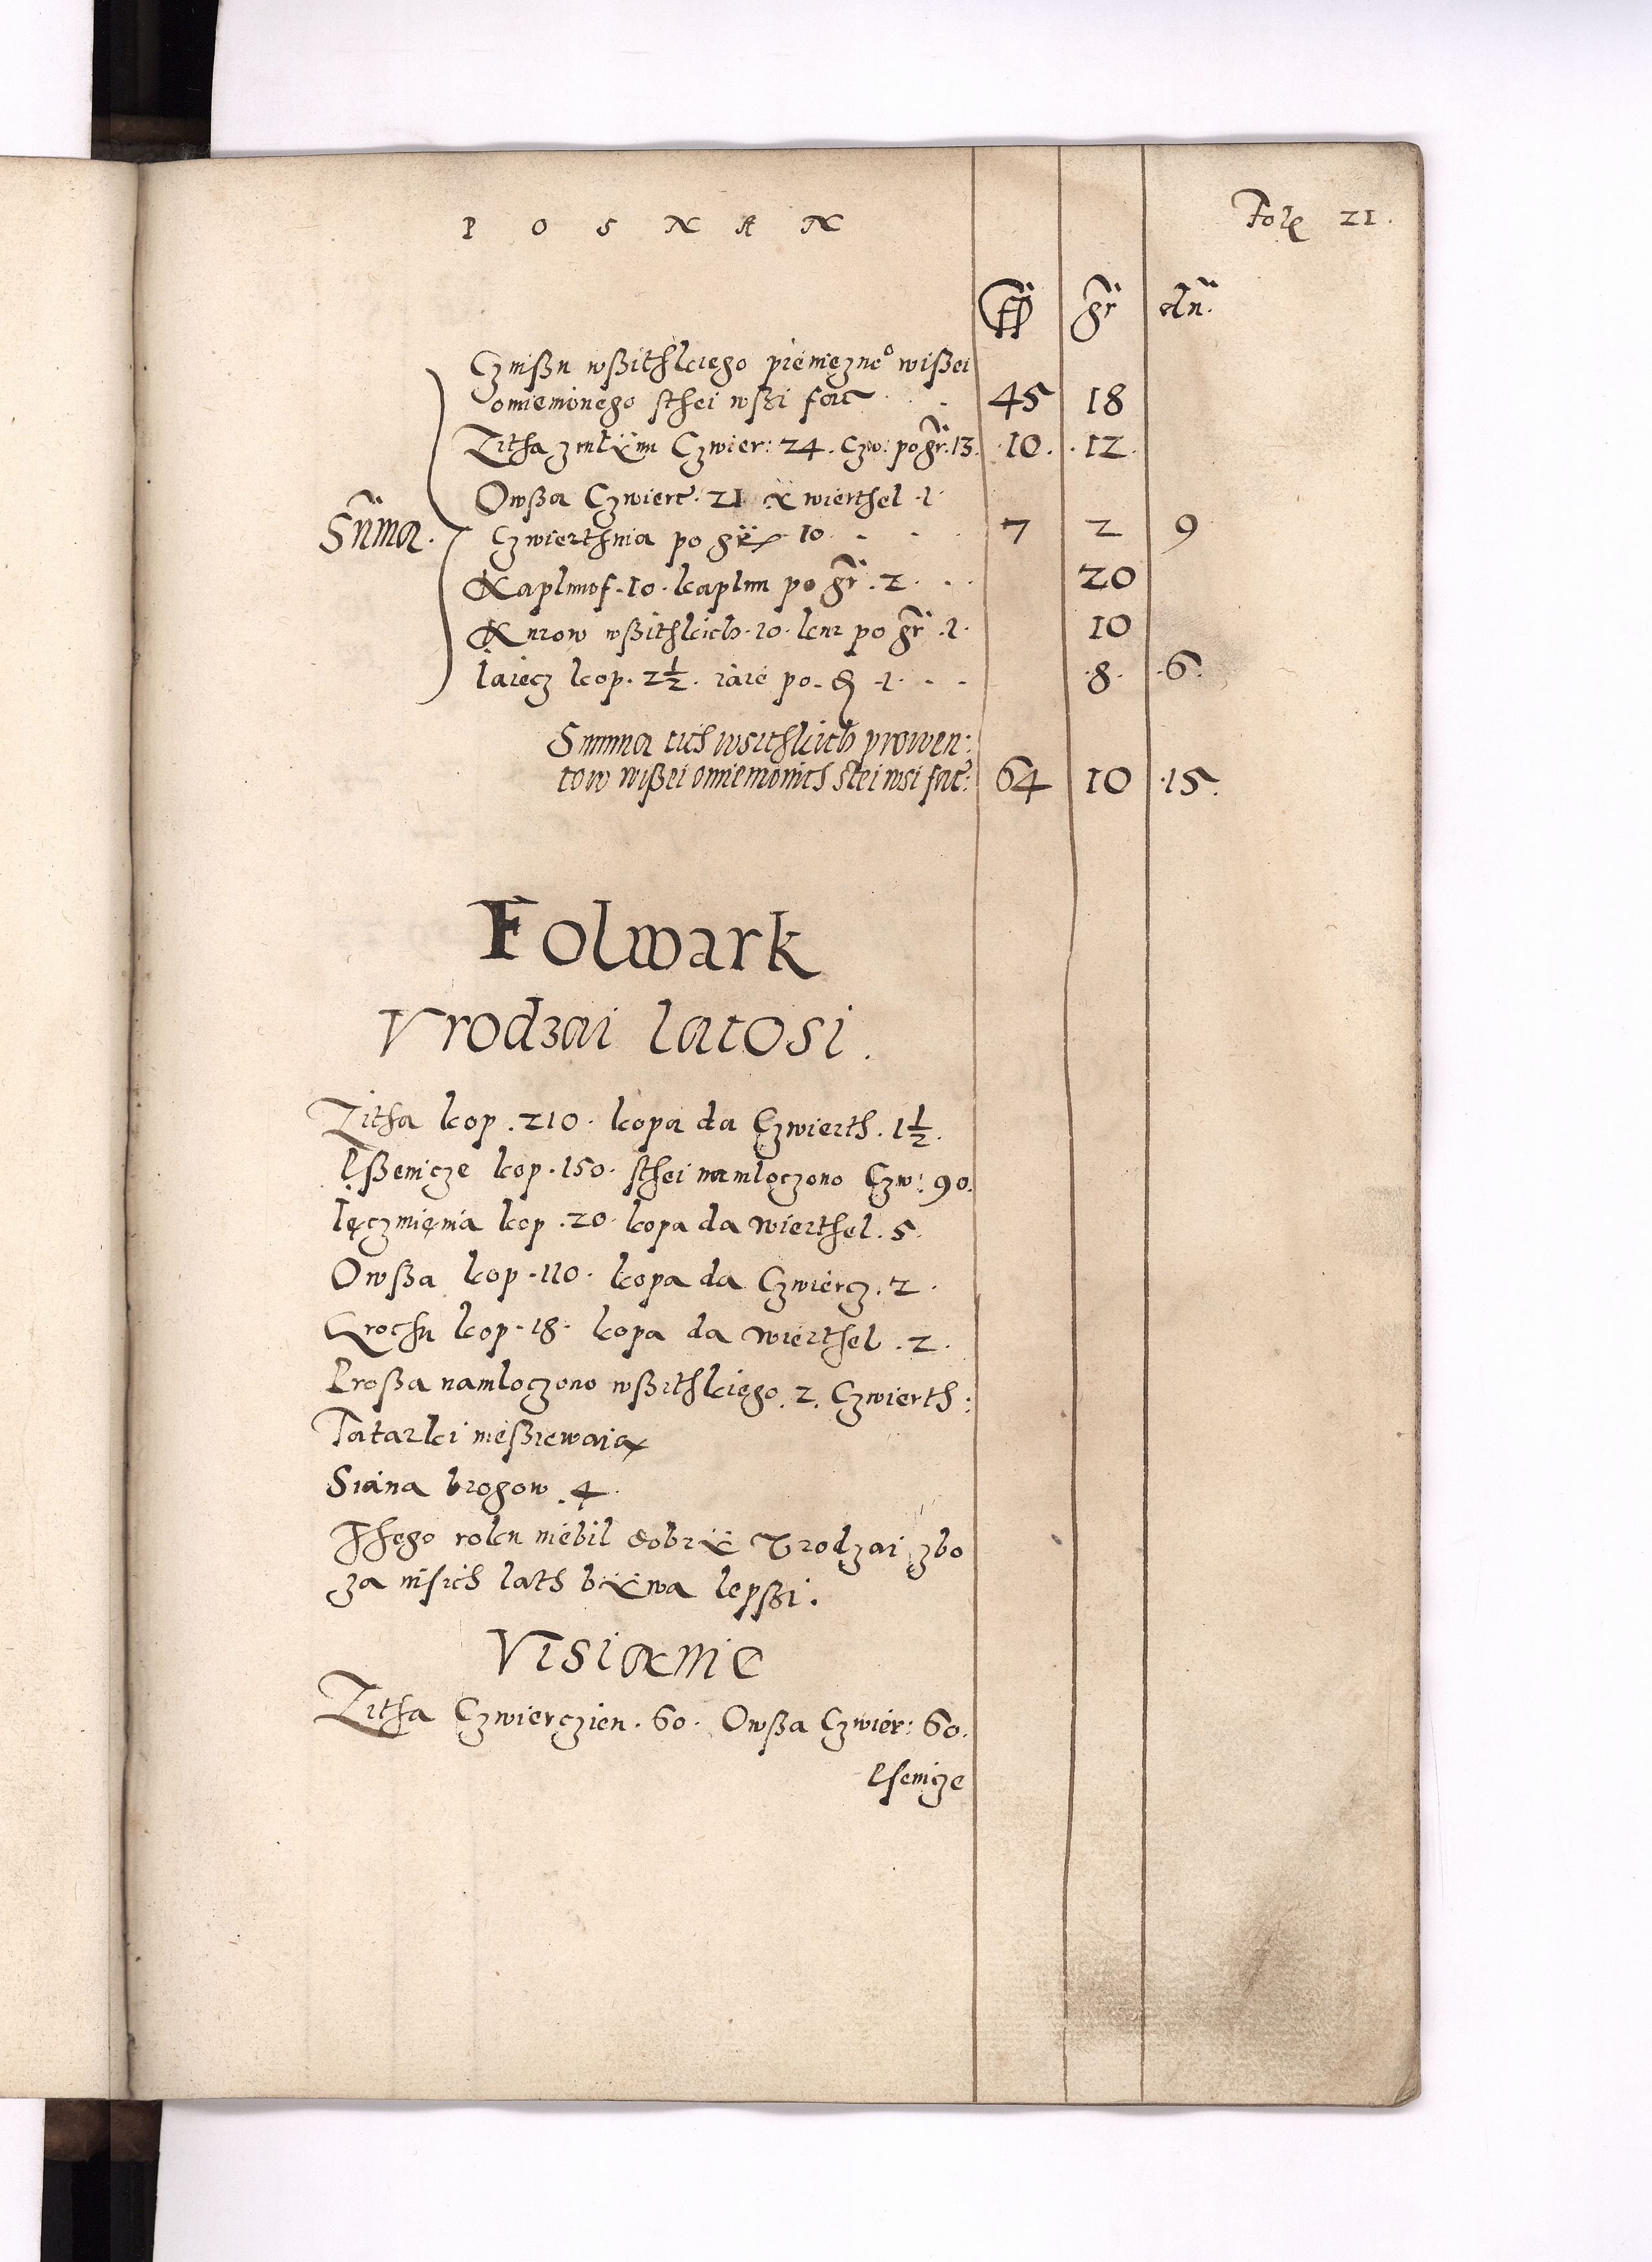 POSNAN
Fol 21.
fl gr dn.
Czinßu wßithkiego pieniężneo wißei
omienionego sthei wßi facit 45 18
Zitha zmlÿm Czwier: 24. Czw: po gr. 13. 10. 12.
Owßa Cżwierc. 21 ÿ wierthel 1
Summa. Czwierthnia po gr 10. 7 2 9
Kaplunof. 10. kaplun po gr. 2. 20
Kurow wßithkich. 10. kur po gr. 1. 10
Iaiecz kop. 2½. iaie po. 1. 8. 6.
Summa tich wsithkich prowen:
tow wißei omienionich stei wsi fac: 64 10 15.
Folwark
Vrodzai latosi.
Zitha kop. 210. kopa da Czwierth. 1½.
Pßenicze kop. 150. sthei namloczono Czw: 90.
Ięczmięnia kop. 20. kopa da wierthel. 5.
Owßa kop. 110. kopa da Czwiercz. 2.
Grochu kop. 18. kopa da wierthel. 2.
Proßa namloczono wßithkięgo. 2. Czwierth:
Tatarki nießiewaią
Siana brogow. 4.
Thego roku niebil dobrÿ Vrodzai zbo
za inßich lath bÿwa lepßi.
Visianie
Zitha Czwierczien. 60. Owßa Czwier: 60.
Psenicze